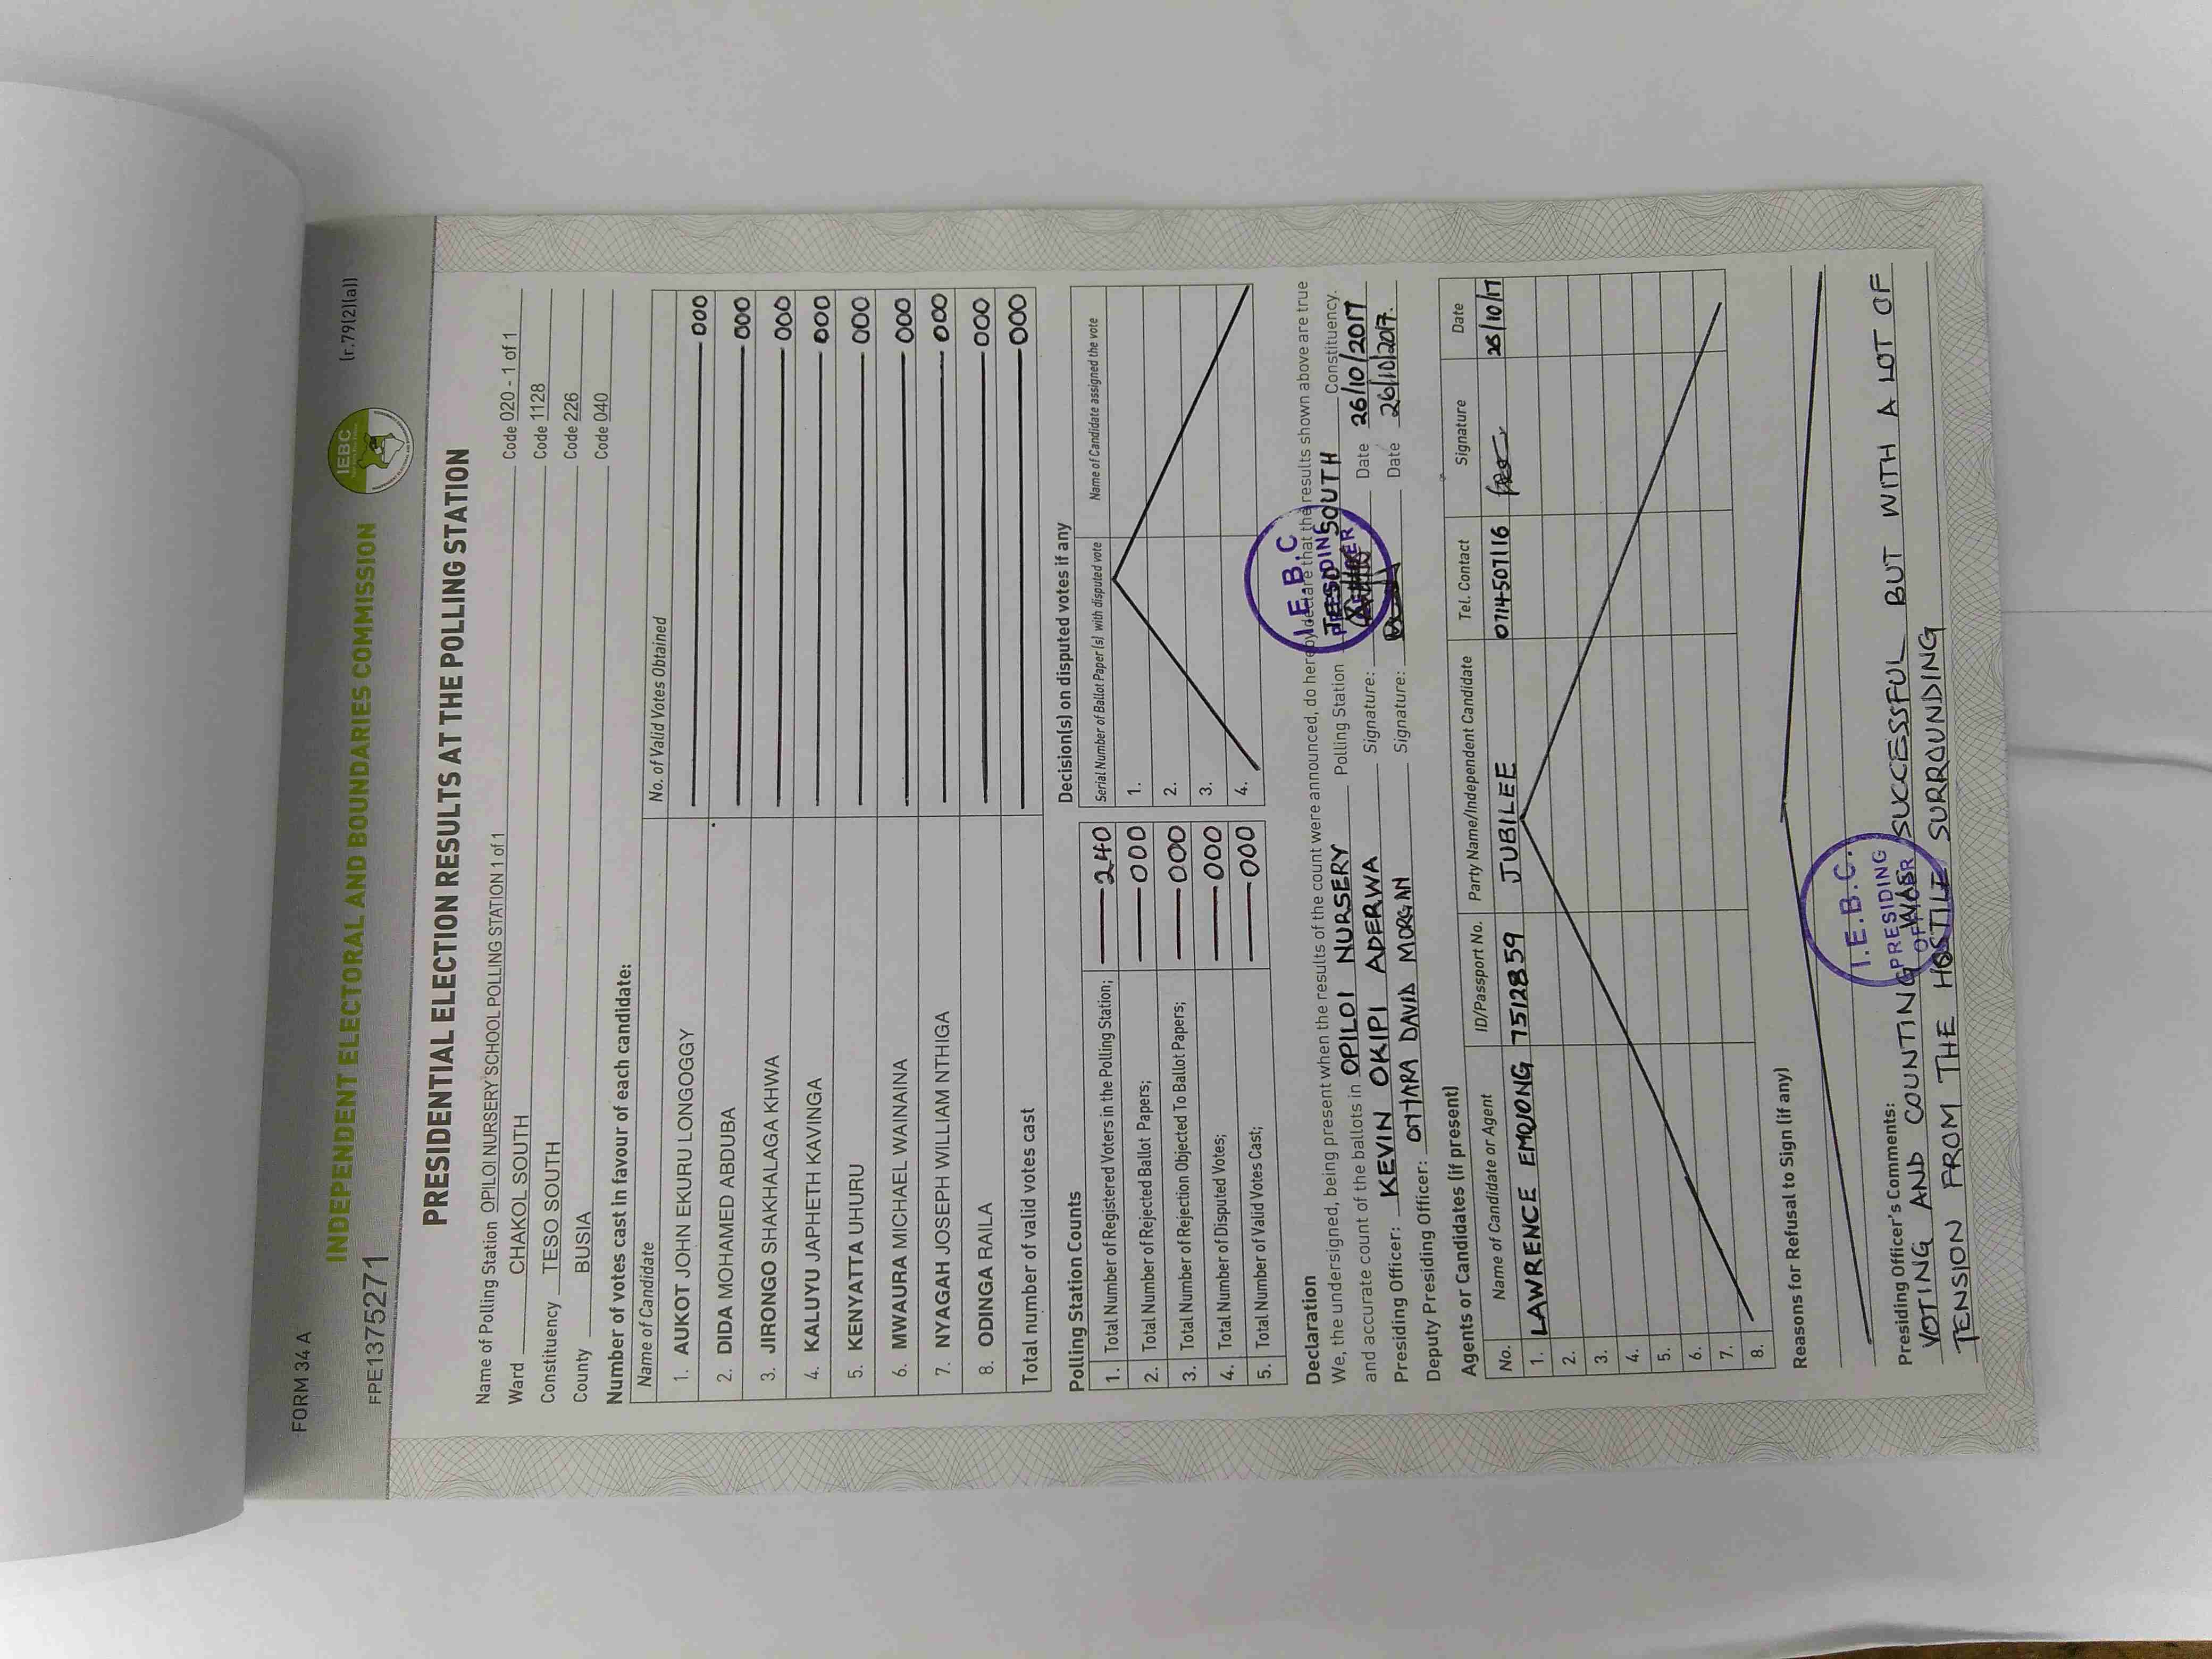 FORM 34 A
(r.79(2)(a))
INDEPENDENT ELECTORAL AND BOUNDARIES COMMISSION
IEBC
FPE1375271
PRESIDENTIAL ELECTION RESULTS AT THE POLLING STATION
Name of Polling Station OPILOI NURSERY SCHOOL POLLING STATION 1 of 1 Code 020 - 1 of 1
Ward CHAKOL SOUTH Code 1128
Constituency TESO SOUTH Code 226
County BUSIA Code 040
Number of votes cast in favour of each candidate:
Name of Candidate No. of Valid Votes Obtained
1. AUKOT JOHN EKURU LONGOGGY 000
2. DIDA MOHAMED ABDUBA 000
3. JIRONGO SHAKHALAGA KHWA 000
4. KALUYU JAPHETH KAVINGA 000
5. KENYATTA UHURU 000
6. MWAURA MICHAEL WAINAINA 000
7. NYAGAH JOSEPH WILLIAM NTHIGA 000
8. ODINGA RAILA 000
Total number of valid votes cast 000
Polling Station Counts
1. Total Number of Registered Voters in the Polling Station; 240
2. Total Number of Rejected Ballot Papers; 000
3. Total Number of Rejection Objected To Ballot Papers; 000
4. Total Number of Disputed Votes; 000
5. Total Number of Valid Votes Cast; 000
Decision(s) on disputed votes if any
Serial Number of Ballot Paper (s) with disputed vote Name of Candidate assigned the vote
1.
2.
3.
4.
Declaration
We, the undersigned, being present when the results of the count were announced, do hereby declare that the results shown above are true
and accurate count of the ballots in OPILOI NURSERY Polling Station TESO SOUTH Constituency.
Presiding Officer: KEVIN OKIPI ADERWA Signature: Date 26/10/2017
Deputy Presiding Officer: OTHARA DAVID MORGAN Signature: Date 26/10/2017.
I.E.B.C
PRESIDING
OFFICER
Agents or Candidates (if present)
No. Name of Candidate or Agent ID/Passport No. Party Name/Independent Candidate Tel. Contact Signature Date
1. LAWRENCE EMOJONG 75128859 JUBILEE 0714507116 26/10/17
2.
3.
4.
5.
6.
7.
8.
Reasons for Refusal to Sign (if any)
Presiding Officer's Comments:
VOTING AND COUNTING WAS SUCCESSFUL BUT WITH A LOT OF
TENSION FROM THE HOSTILE SURROUNDING
I.E.B.C.
PRESIDING
OFFICER